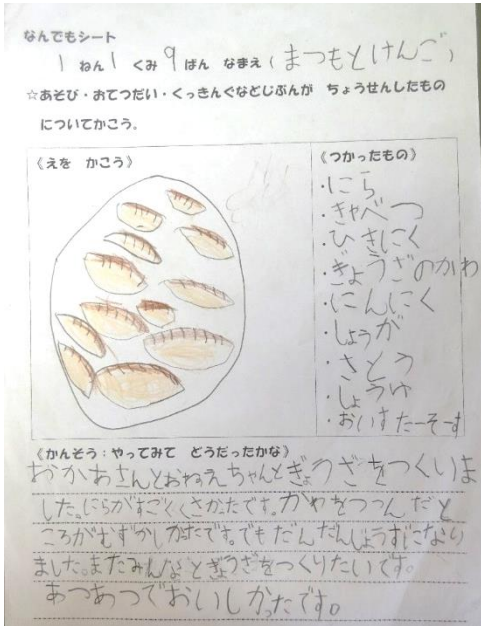 なんでもシート
1 ねん 1 くみ 9 ばん なまえ(まつもとけんご)
☆あそび・おてつだい・くっきんぐなどじぶんが ちょうせんしたもの
についてかこう。
《えを かこう》
《つかったもの》
・にら
・きゃべつ
・ひきにく
・ぎょうざのかわ
・にんにく
・しょうが
・さとう
・しょうゆ
・おいすたーそーす
《かんそう:やってみて どうだったかな》
おかあさんとおねえちゃんとぎょうざをつくいま
した。にらがすごくくさかたです。かわをつつんだと
ころがむずかしかたです。でもだんだんじょうずになり
ました。またみんなとぎょうざをつくりたいです。
あつあつでおいしかったです。